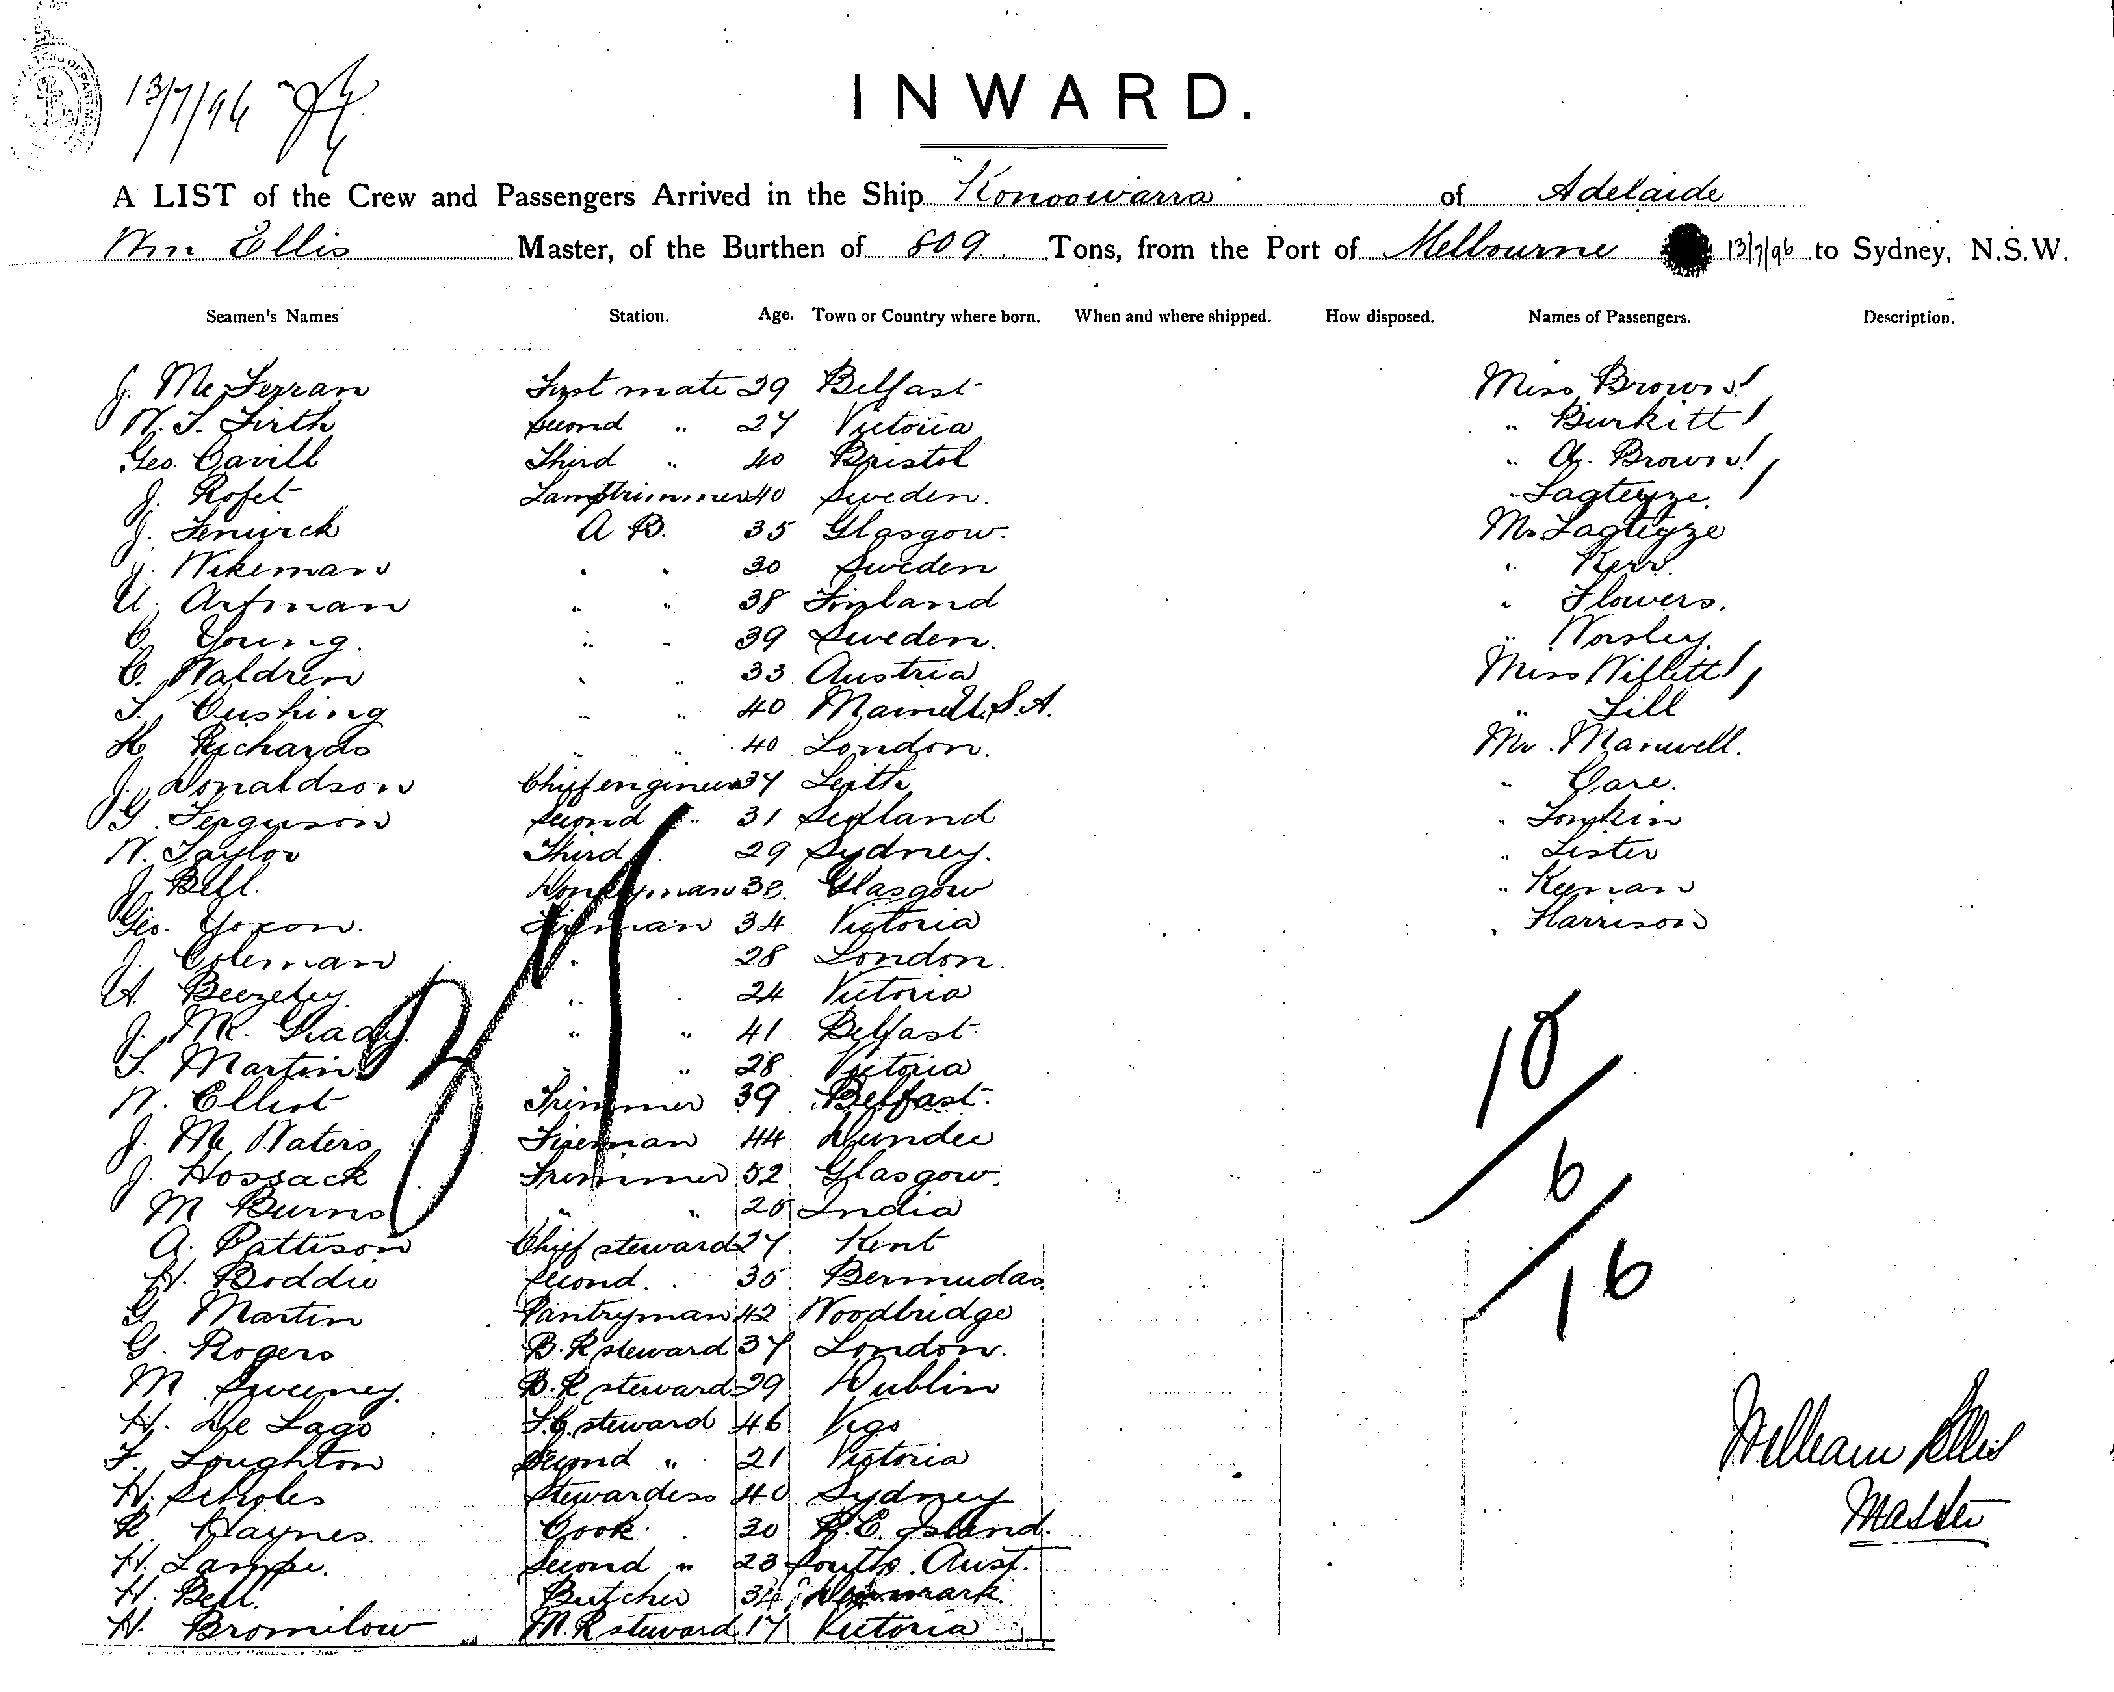 13/7/96
INWARD.
A LIST of the Crew and Passengers Arrived in the Ship Konoowarra of Adelaide
Wm Ellis Master, of the Burthen of 809 Tons, from the Port of Melbourne 13/7/96 to Sydney, N.S.W.
Seamen's Names Station. Age. Town or Country where born. When and where shipped. How disposed. Names of Passengers. Description.
J. McFerran First mate 29 Belfast Miss Brown
W. S. Firth Second " 27 Victoria " Burkitt
Geo. Cavill Third " 40 Bristol " A. Brown
J. Rofet Lamptrimmer 40 Sweden. "
J. Fenwick A B. 35 Glasgow. Mr
J. Wikeman " " 30 Sweden " Kerr.
U. Artman " " 38 Finland " Flowers.
C. Young. " " 39 Sweden. " Worsley
C. Waldren " " 33 Austria Miss Willett
S. Cushing " " 40 Maine U.S.A. " Lill
H. Richards " " 40 London. Mr. Manwell.
J. Donaldson Chief engineer 37 Leith " Care.
G. Ferguson Second " 31 Scotland " Tomkin
W. Taylor Third " 29 Sydney. " Lister
J. Bell. Donkeyman 38 Glasgow " Keenan
Geo. Yoxon. Fireman 34 Victoria " Harrison
J. Coleman " 28 London.
A. Beezeley. " " 24 Victoria
J. Mc Grady. " " 41 Belfast
S. Martin " " 28 Victoria
W. Elliot Trimmer 39 Belfast.
J. Mc Waters Fireman 44 Dundee
J. Hossack Trimmer 52 Glasgow.
M Burns " " 25 India
A. Pattison Chief steward 27 Kent
H. Boddie Second " 35 Bermudas
G Martin Pantryman 42 Woodbridge
G. Rogers B. R steward 37 London.
M Sweeney. B. R steward 29 Dublin
H. De Lago F.C. steward 46 Vigo
F. Loughton Second " 21 Victoria
H. Scholes Stewardess 40 Sydney
R. Haynes. Cook 30 Island.
H. Lampe. Second " 23 South Aust.
H. Bell. Butcher 34 Denmark.
H. Bromilow M. R steward 17 Victoria
37
10
6
16
William Ellis
Master